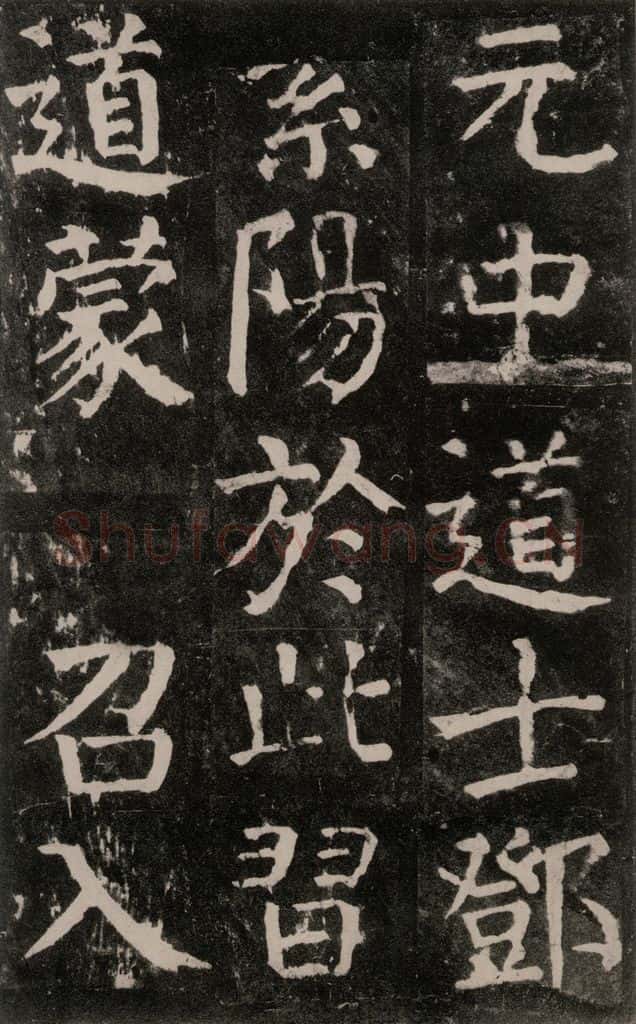 元中道士鄧
紫陽於此習
道蒙召入
Shufawang.CN